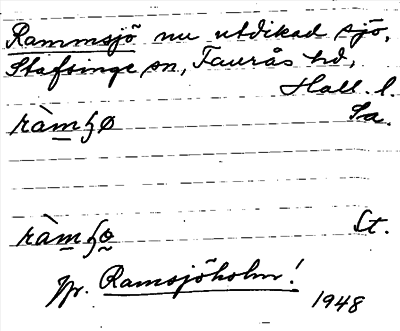 Rammsjö nu utdikad sjö,
Stafsinge sn, Faurås hd,
Hall. l.
ràmɧø Sa.
ràmɧø St.
Jfr. Ramsjöholm!
1948